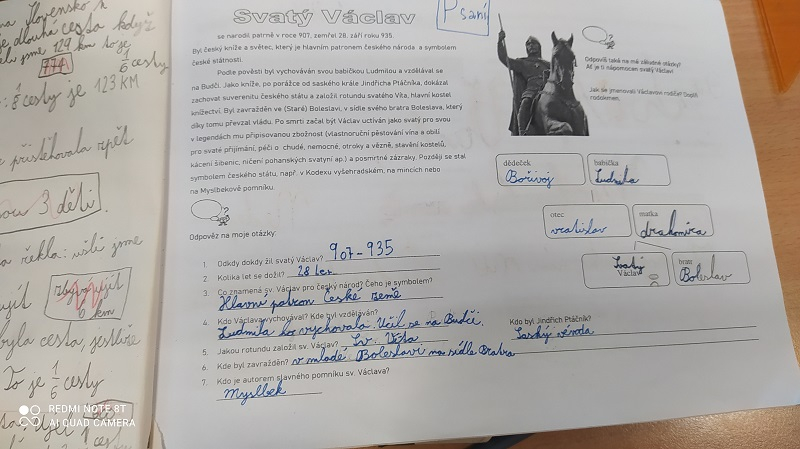 na Slovensko k
je dlouhá cesta když
jsme 129 km to je
cesty
cesty je 123 KM
přistěhovala zpět
3 děti.
řekla: ušli jsme
6 km
byla cesta, jestliže
To je 1/6 cesty
REDMI NOTE 8T
AI QUAD CAMERA
Svatý Václav
Psaní
se narodil patrně v roce 907, zemřel 28. září roku 935.
Byl český kníže a světec, který je hlavním patronem českého národa a symbolem
české státnosti.
Podle pověsti byl vychováván svou babičkou Ludmilou a vzdělával se
na Budči. Jako kníže, po porážce od saského krále Jindřicha Ptáčníka, dokázal
zachovat suverenitu českého státu a založil rotundu svatého Víta, hlavní kostel
knížectví. Byl zavražděn ve (Staré) Boleslavi, v sídle svého bratra Boleslava, který
díky tomu převzal vládu. Po smrti začal být Václav uctíván jako svatý pro svou
v legendách mu připisovanou zbožnost (vlastnoruční pěstování vína a obilí
pro svaté přijímání, péči o chudé, nemocné, otroky a vězně, stavění kostelů,
kácení šibenic, ničení pohanských svatyní ap.) a posmrtné zázraky. Později se stal
symbolem českého státu, např. v Kodexu vyšehradském, na mincích nebo
na Myslbekově pomníku.
Odpověz na moje otázky:
1. Odkdy dokdy žil svatý Václav? 907-935
2. Kolika let se dožil? 28 let
3. Co znamená sv. Václav pro český národ? Čeho je symbolem?
Hlavní patron České země
4. Kdo Václava vychovával? Kde byl vzděláván?
Ludmila ho vychovala. Učil se na Budči.
5. Jakou rotundu založil sv. Václav? Sv. Víta
6. Kde byl zavražděn? v mladé Boleslavi na sídle Bratra
7. Kdo je autorem slavného pomníku sv. Václava?
Myslbek
Kdo byl Jindřich Ptáčník?
Saský
Odpovíš také na mé záludné otázky?
Ať je ti nápomocen svatý Václav!
Jak se jmenovali Václavovi rodiče? Doplň
rodokmen.
dědeček
Bořivoj
babička
Ludmila
otec
vratislav
matka
drahomíra
Svatý
Václav
bratr
Boleslav